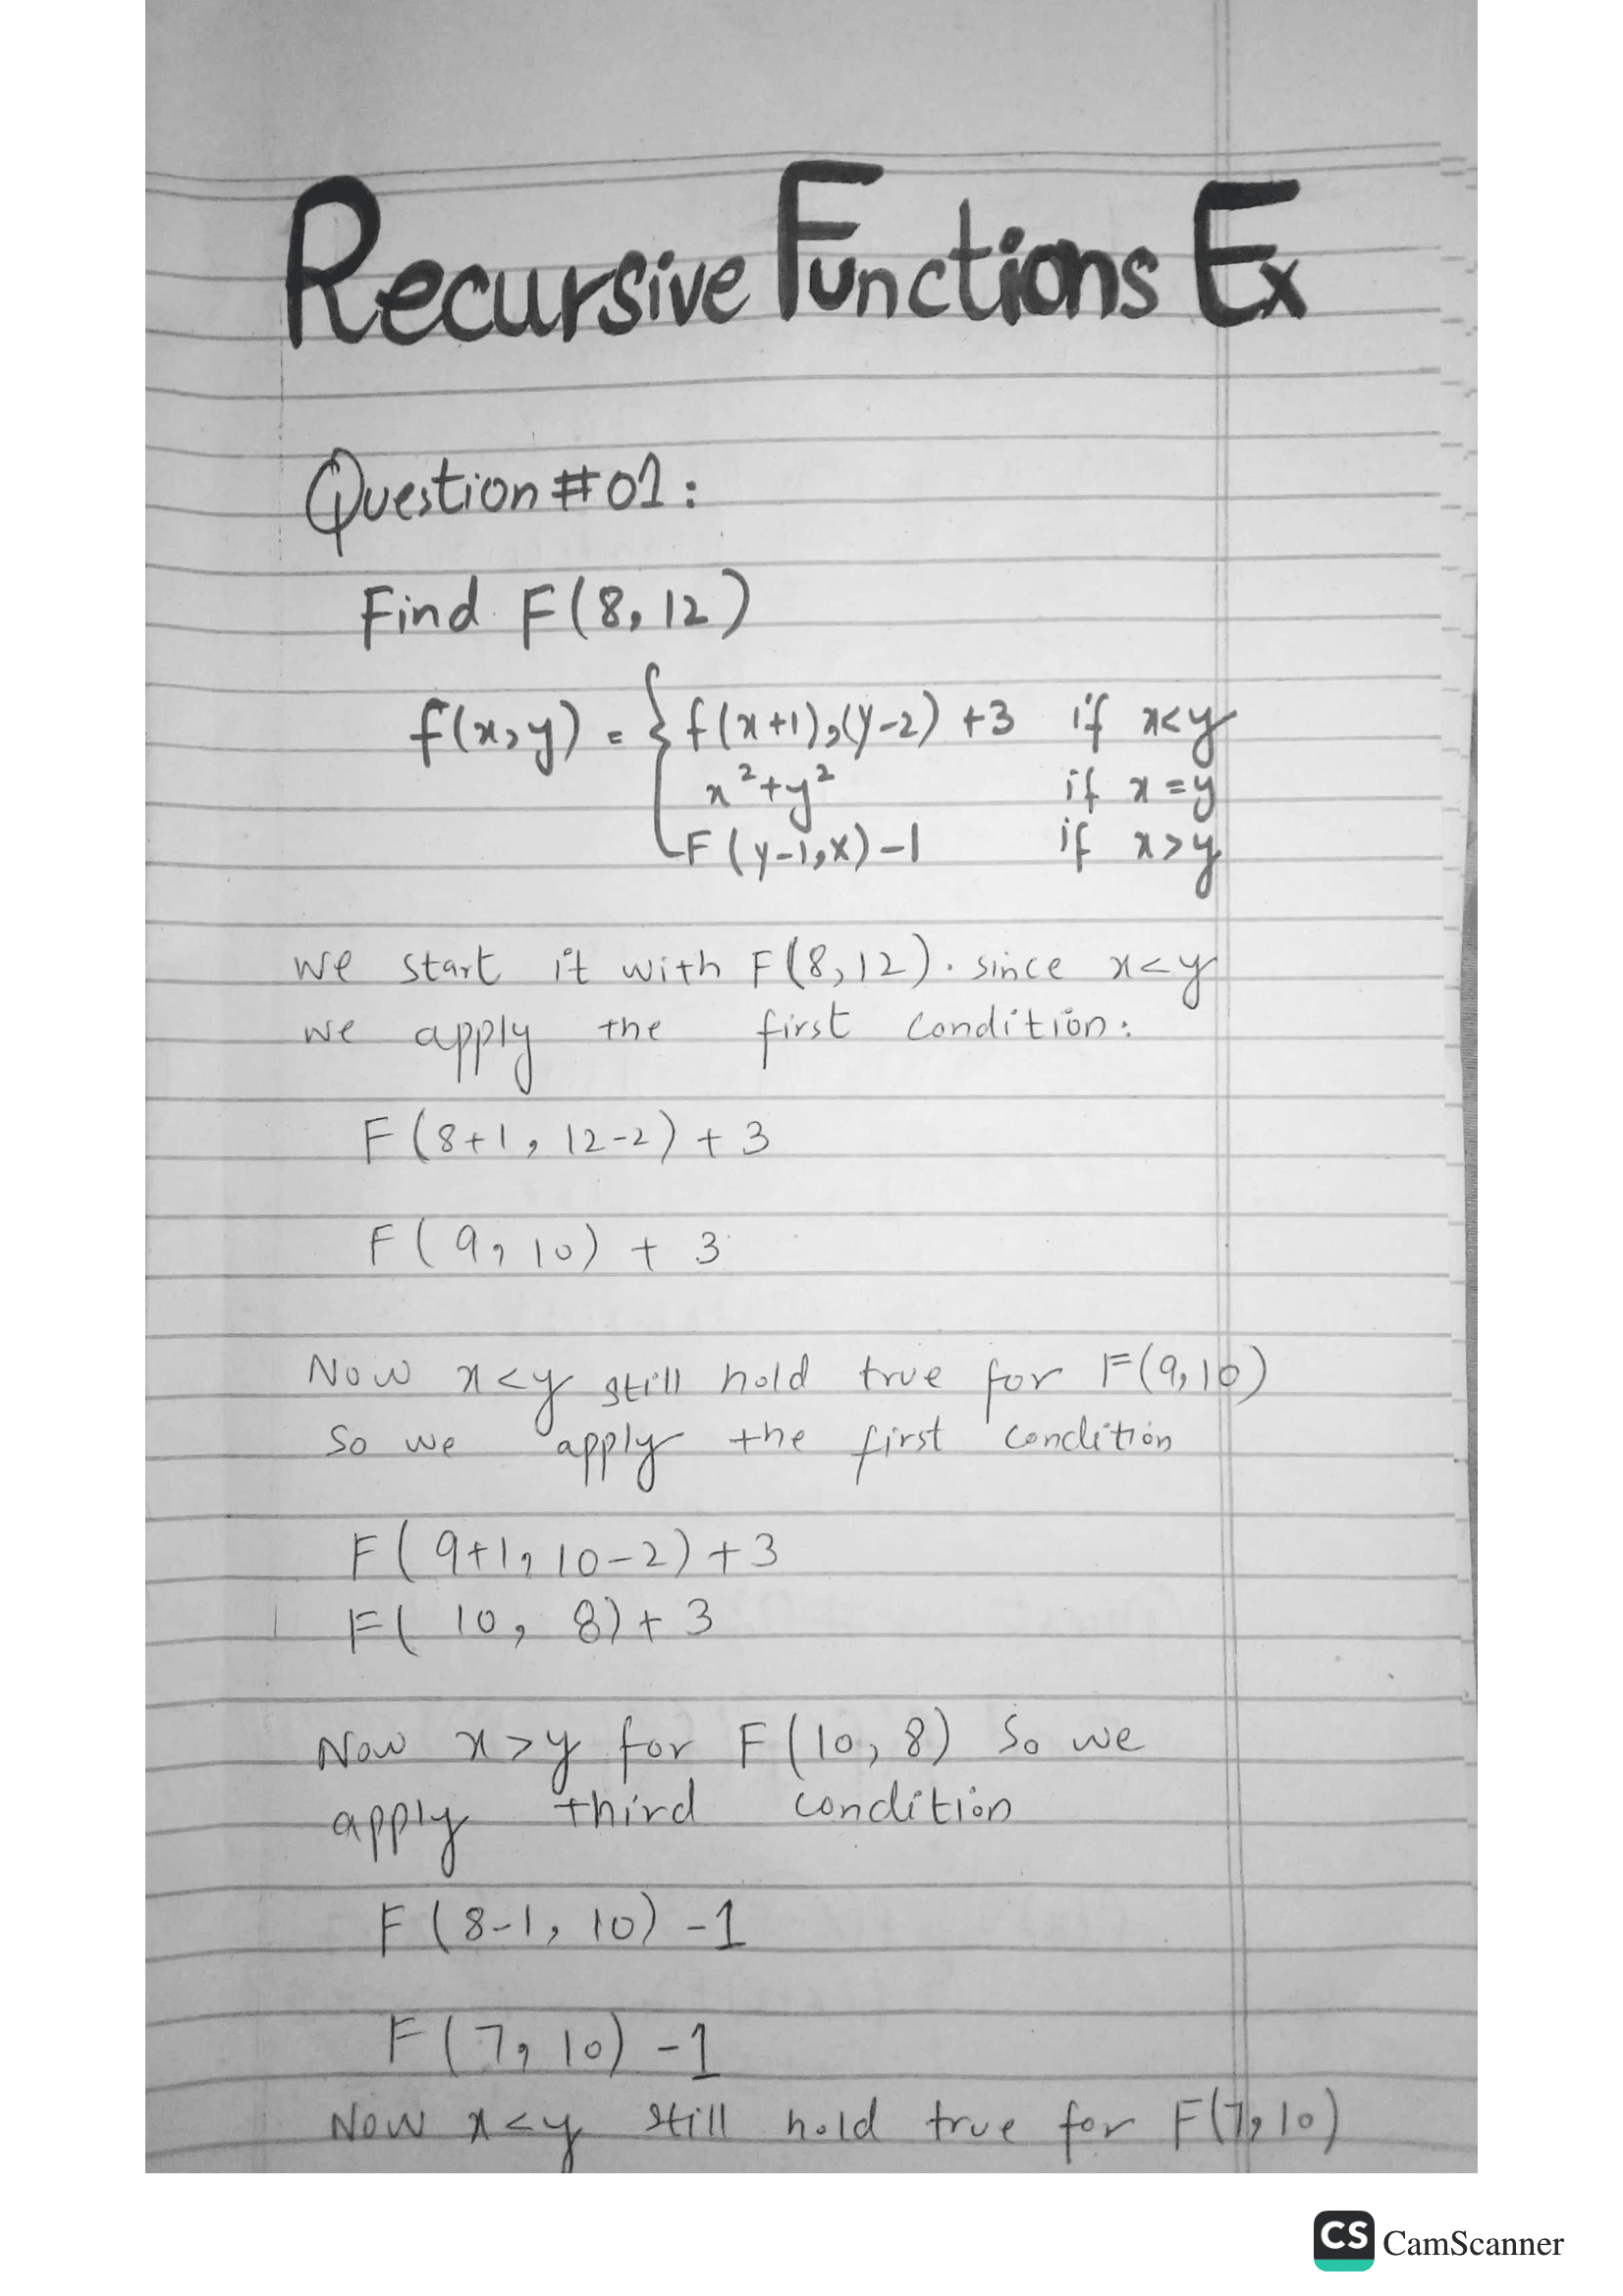 Recursive Functions Ex
Question #01:
Find F(8, 12)
f(x,y) = { f(x+1),(y-2) +3 if x<y
x²+y² if x=y
F(y-1,x)-1 if x>y
we start it with F(8,12). since x<y
we apply the first condition:
F(8+1, 12-2) + 3
F(9, 10) + 3
Now x<y still hold true for F(9,10)
So we apply the first condition
F(9+1, 10-2)+3
F(10, 8)+3
Now x>y for F(10, 8) So we
apply third condition
F(8-1, 10) -1
F(7, 10) -1
Now x<y still hold true for F(7,10)
CS CamScanner